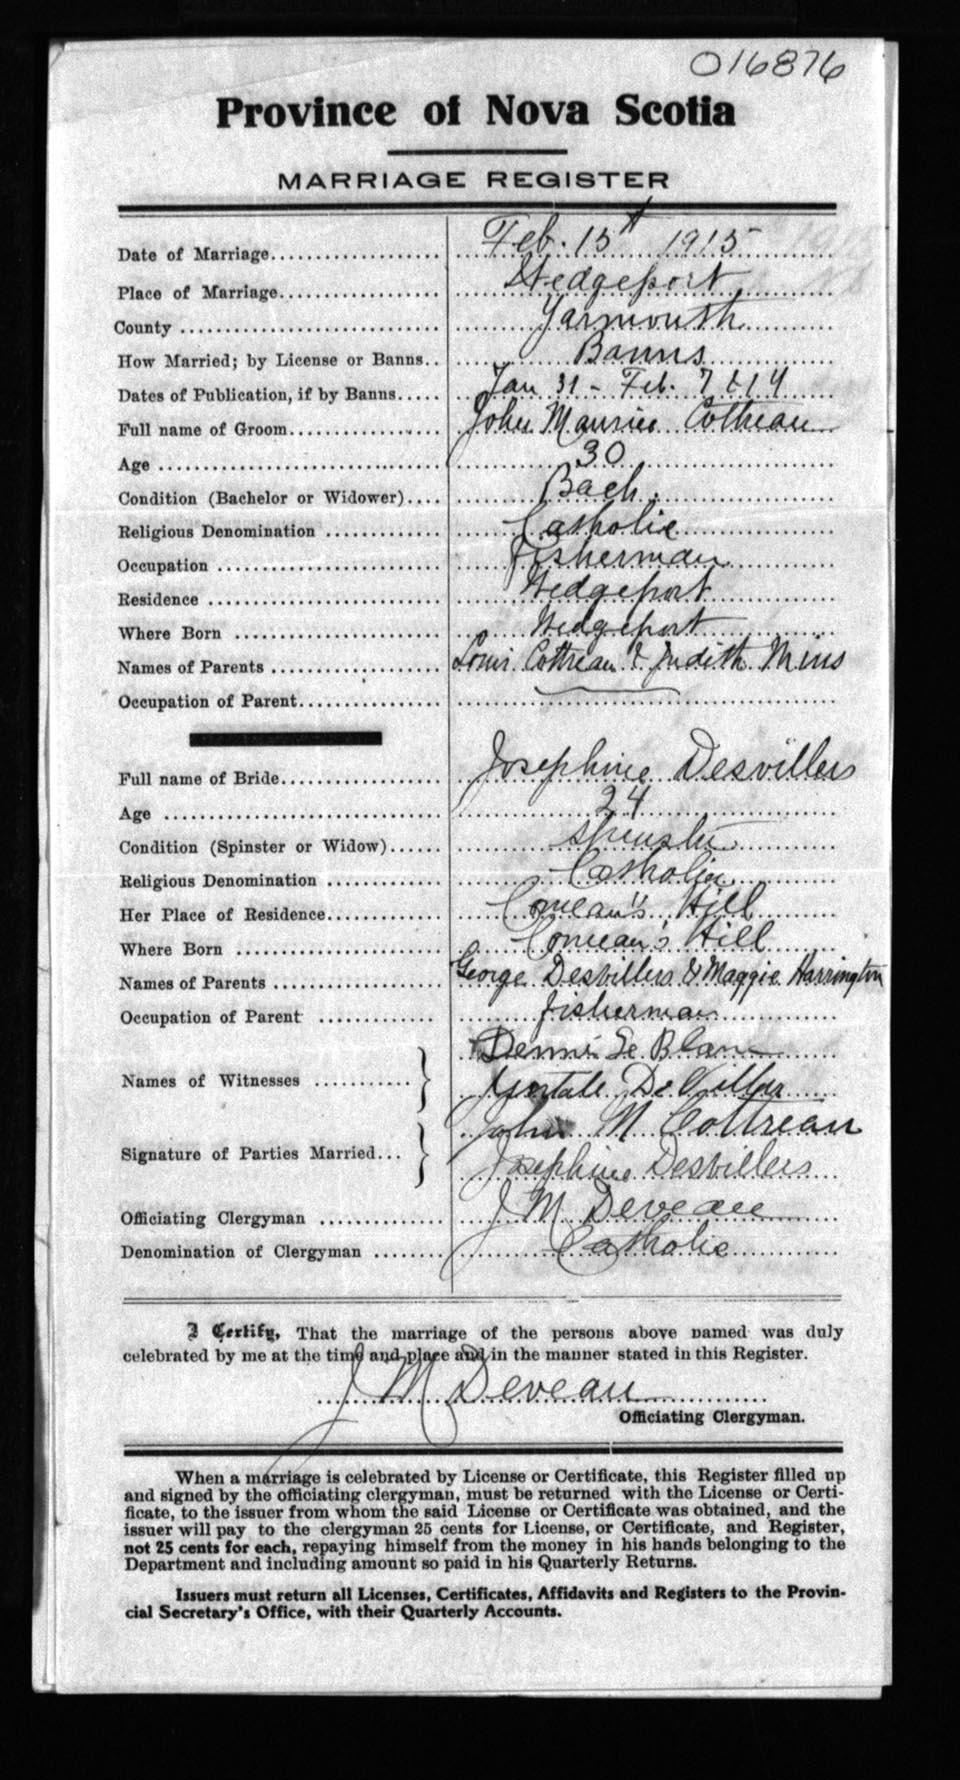 016876
Province of Nova Scotia
MARRIAGE REGISTER
Date of Marriage Feb. 15th 1915
Place of Marriage Wedgeport
County Yarmouth
How Married; by License or Banns Banns
Dates of Publication, if by Banns Jan 31 - Feb. 7 & 14
Full name of Groom John Maurice Cottreau
Age 30
Condition (Bachelor or Widower) Bach.
Religious Denomination Catholic
Occupation Fisherman
Residence Wedgeport
Where Born Wedgeport
Names of Parents Louis Cottreau & Judith Mius
Occupation of Parent
Full name of Bride Josephine Desvillers
Age 24
Condition (Spinster or Widow) Spinster
Religious Denomination Catholic
Her Place of Residence Comeau's Hill
Where Born Comeau's Hill
Names of Parents George Desvillers & Maggie Harrington
Occupation of Parent fisherman
Names of Witnesses Dennis Le Blanc
De Villar
Signature of Parties Married John M Cottreau
Josephine Desvillers
Officiating Clergyman J M Deveau
Denomination of Clergyman Catholic
I Certify, That the marriage of the persons above named was duly
celebrated by me at the time and place and in the manner stated in this Register.
J M Deveau
Officiating Clergyman.
When a marriage is celebrated by License or Certificate, this Register filled up
and signed by the officiating clergyman, must be returned with the License or Certi-
ficate, to the issuer from whom the said License or Certificate was obtained, and the
issuer will pay to the clergyman 25 cents for License, or Certificate, and Register,
not 25 cents for each, repaying himself from the money in his hands belonging to the
Department and including amount so paid in his Quarterly Returns.
Issuers must return all Licenses, Certificates, Affidavits and Registers to the Provin-
cial Secretary's Office, with their Quarterly Accounts.